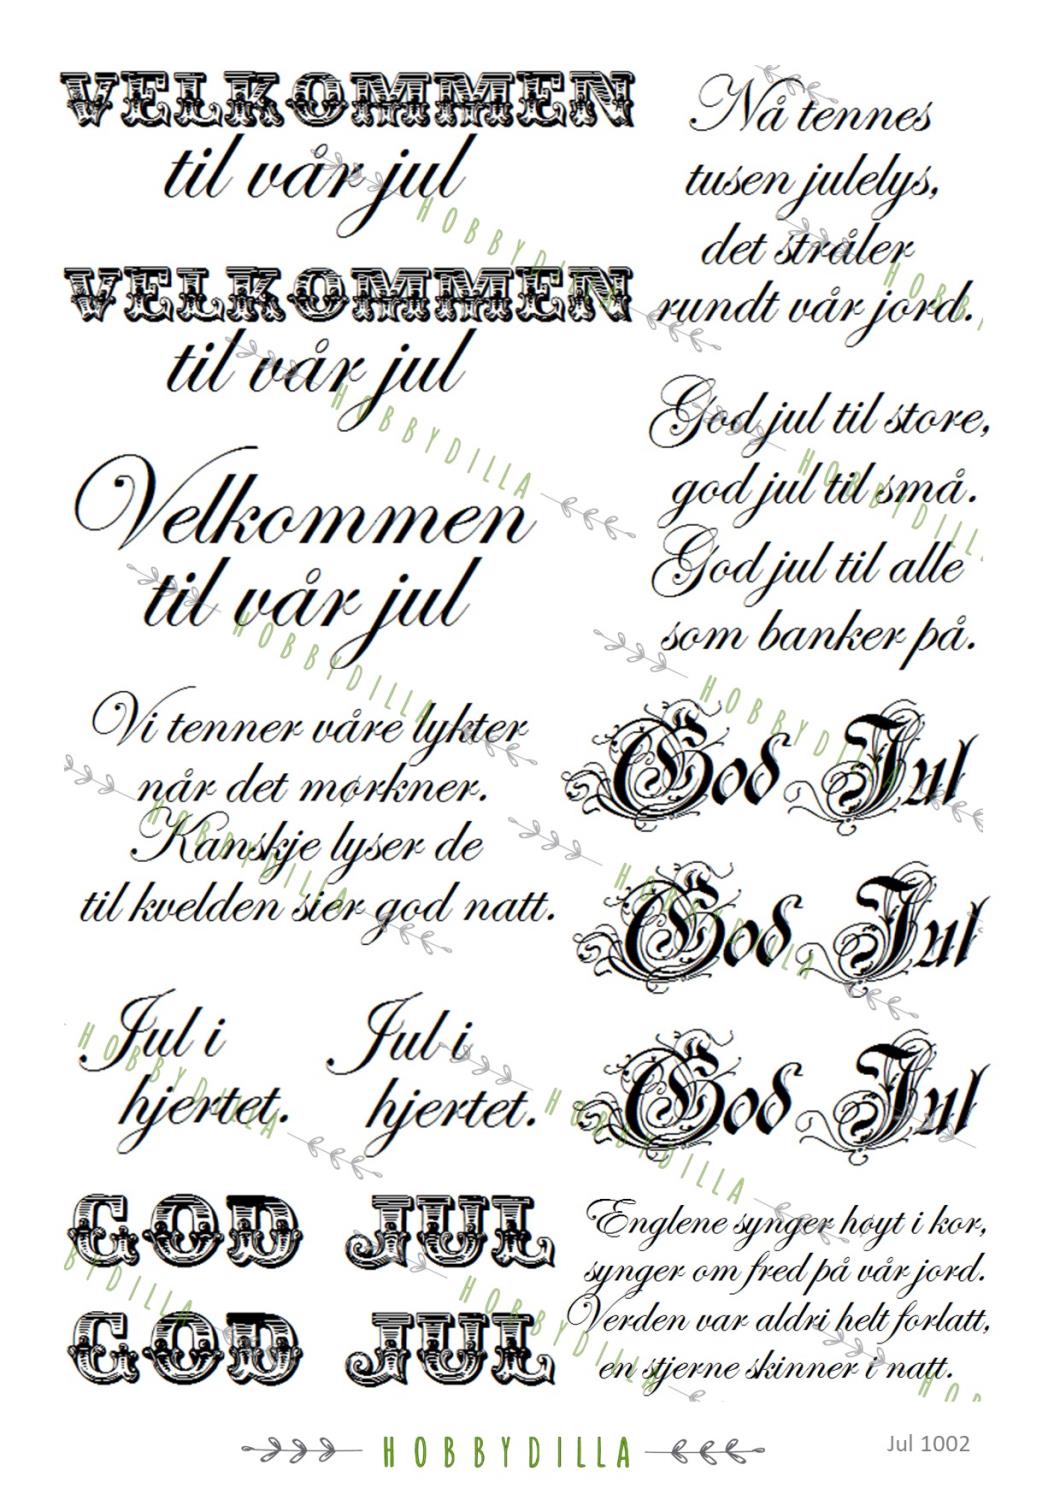 VELKOMMEN
til vår jul
VELKOMMEN
til vår jul
Velkommen
til vår jul
Vi tenner våre lykter
når det mørkner.
Kanskje lyser de
til kvelden sier god natt.
Jul i
hjertet.
Jul i
hjertet.
GOD JUL
GOD JUL
Nå tennes
tusen julelys,
det stråler
rundt vår jord.
God jul til store,
god jul til små.
God jul til alle
som banker på.
God Jul
God Jul
God Jul
Englene synger høyt i kor,
synger om fred på vår jord.
Verden var aldri helt forlatt,
en stjerne skinner i natt.
HOBBYDILLA
Jul 1002